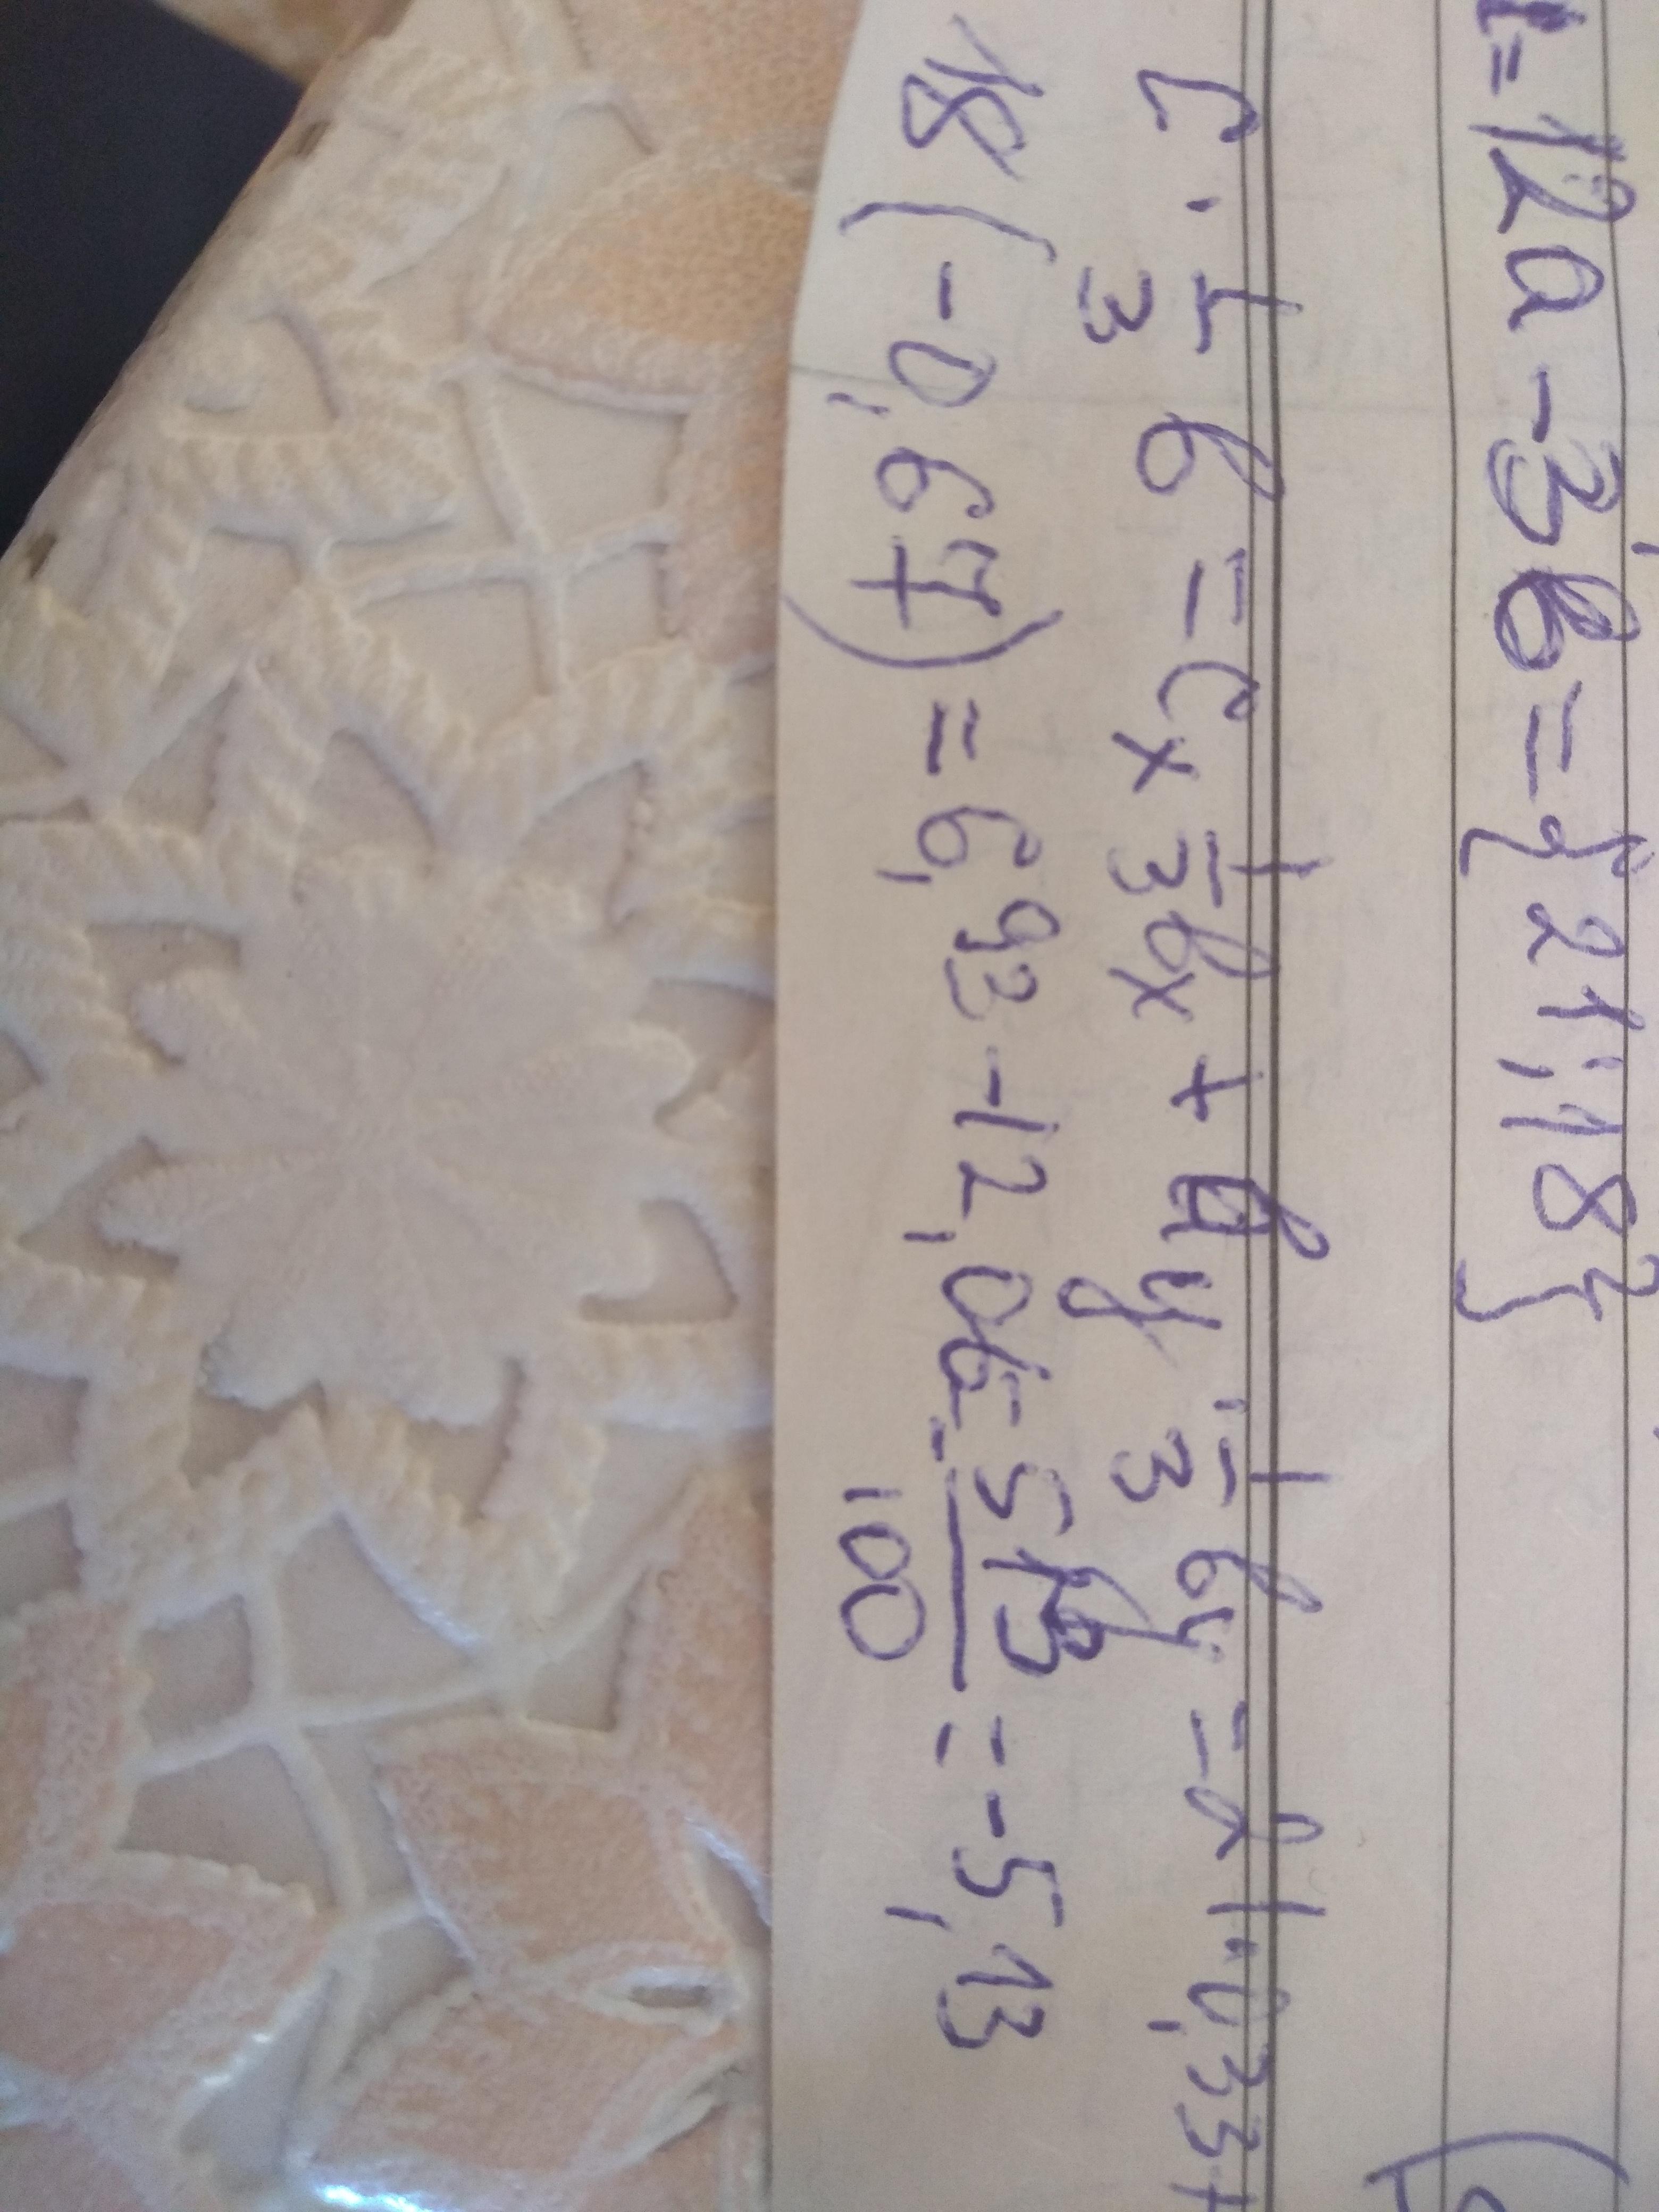 = 12a - 3b = {21; 18}
c · 1/3 b = cx 1/3 bx + cy · 1/3 by = 21 · 0,33 +
18 (-0,67) = 6,93 - 12,06 = - 513/100 = -5,13